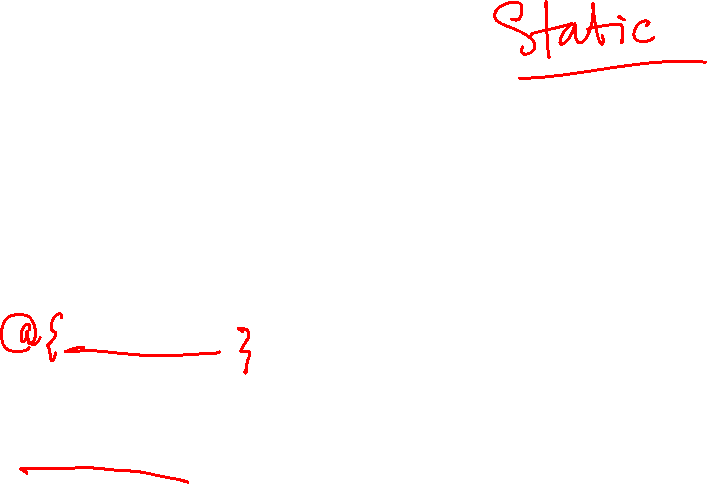 Static
@{ }